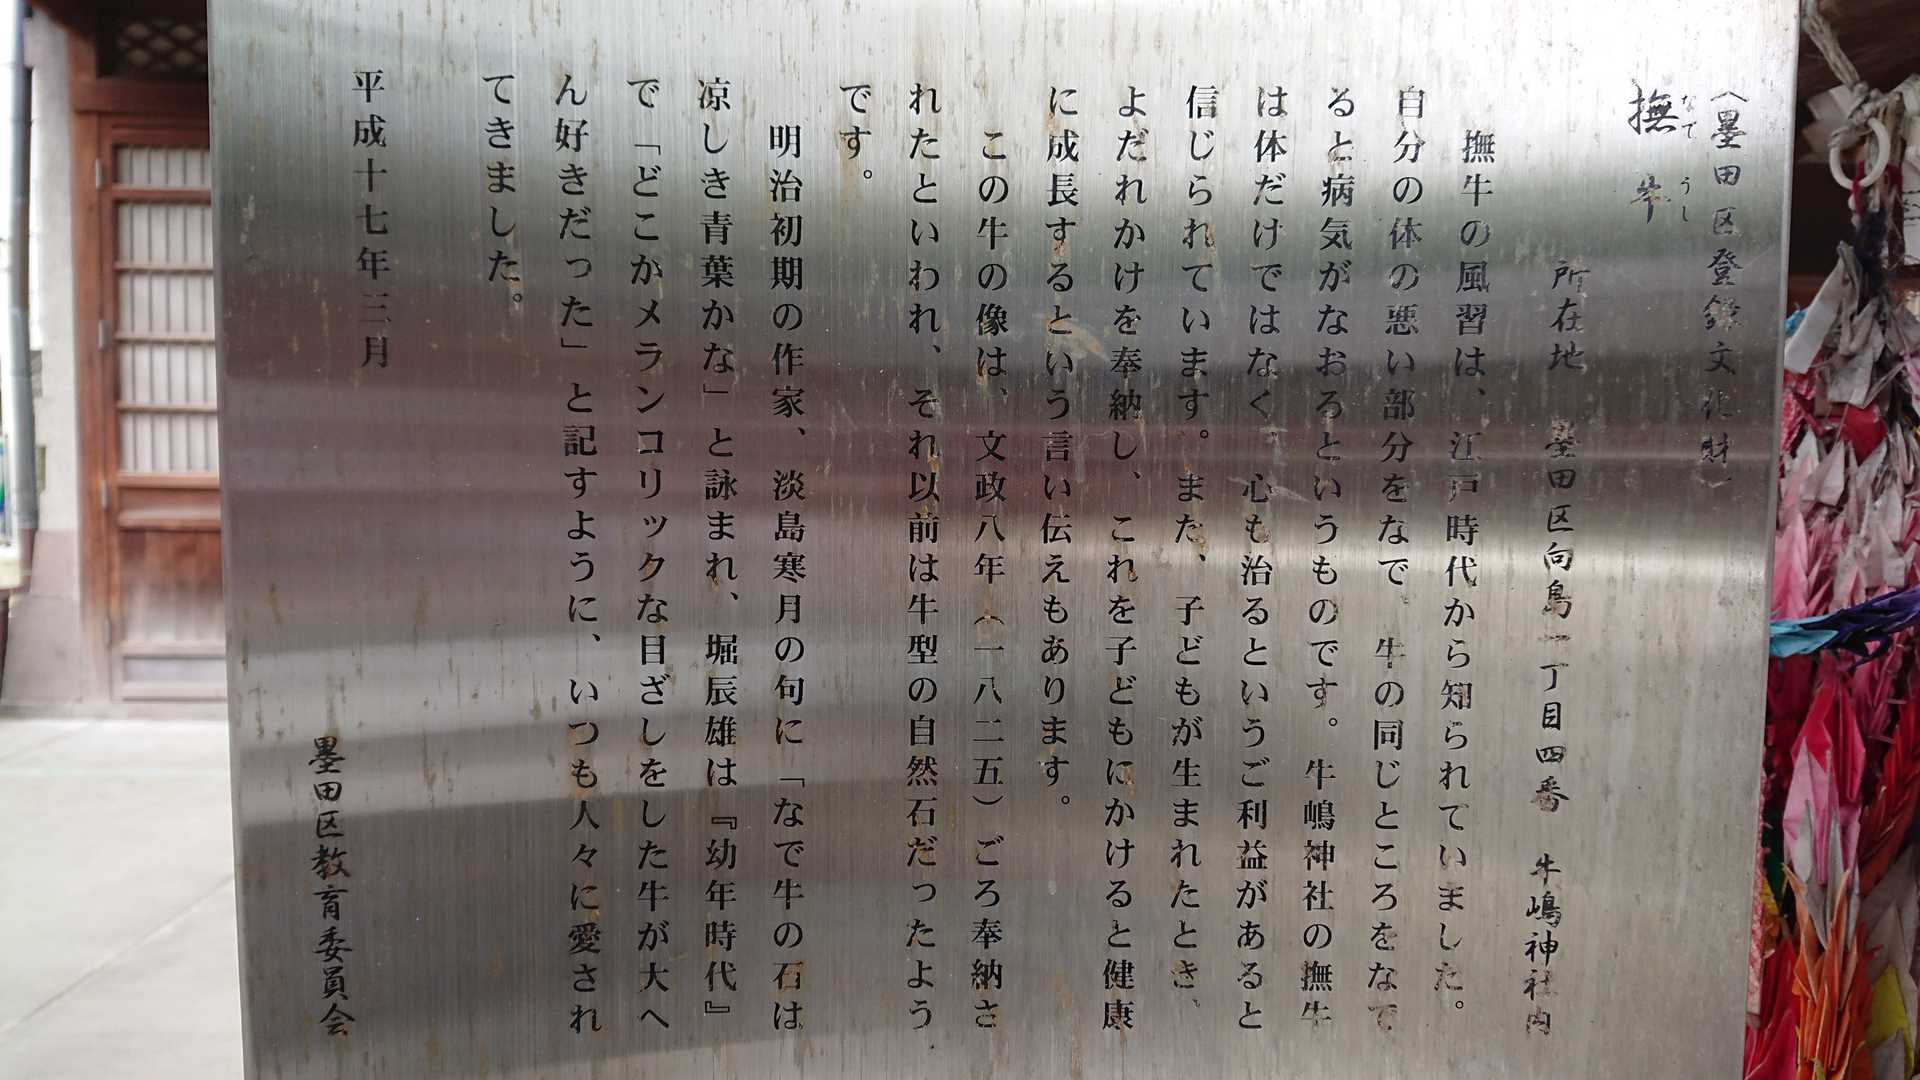 〈墨田区登録文化財〉
撫牛
なで　うし
所在地　墨田区向島一丁目四番　牛嶋神社内
撫牛の風習は、江戸時代から知られていました。
自分の体の悪い部分をなで、牛の同じところをなで
ると病気がなおるというものです。牛嶋神社の撫牛
は体だけではなく、心も治るというご利益があると
信じられています。また、子どもが生まれたとき、
よだれかけを奉納し、これを子どもにかけると健康
に成長するという言い伝えもあります。
この牛の像は、文政八年（一八二五）ごろ奉納さ
れたといわれ、それ以前は牛型の自然石だったよう
です。
明治初期の作家、淡島寒月の句に「なで牛の石は
凉しき青葉かな」と詠まれ、堀辰雄は『幼年時代』
で「どこかメランコリックな目ざしをした牛が大へ
ん好きだった」と記すように、いつも人々に愛され
てきました。
平成十七年三月
墨田区教育委員会